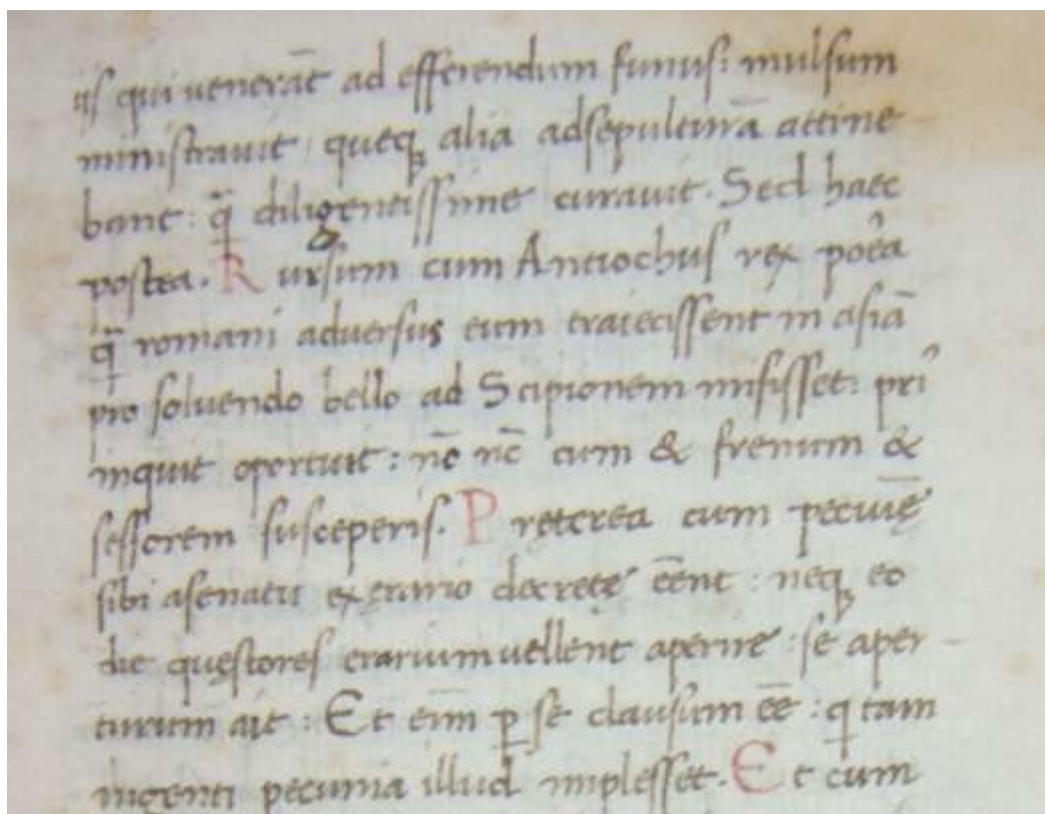 iis qui venerāt ad efferendum funus: mulsum
ministravit, queq; alia adsepulturā attine
bant: q̄ diligentissime curavit. Sed haec
postea. Rursum cum Antiochus rex poēa
q̄ romani adversus eum traiecissent in asiā
pro solvendo bello ad Scipionem misisset: pri
inquit oportuit: nō nc̄ cum & frenum &
sessorem susceperis. Preterea cum pecuię
sibi asenatu exerario decretę eēnt: neq; eo
die quęstores erarium vellent aperire: se aper-
turum ait: Et enī̄ p̱ se clausum eē: q tam
ingenti pecunia illud implesset. Et cum